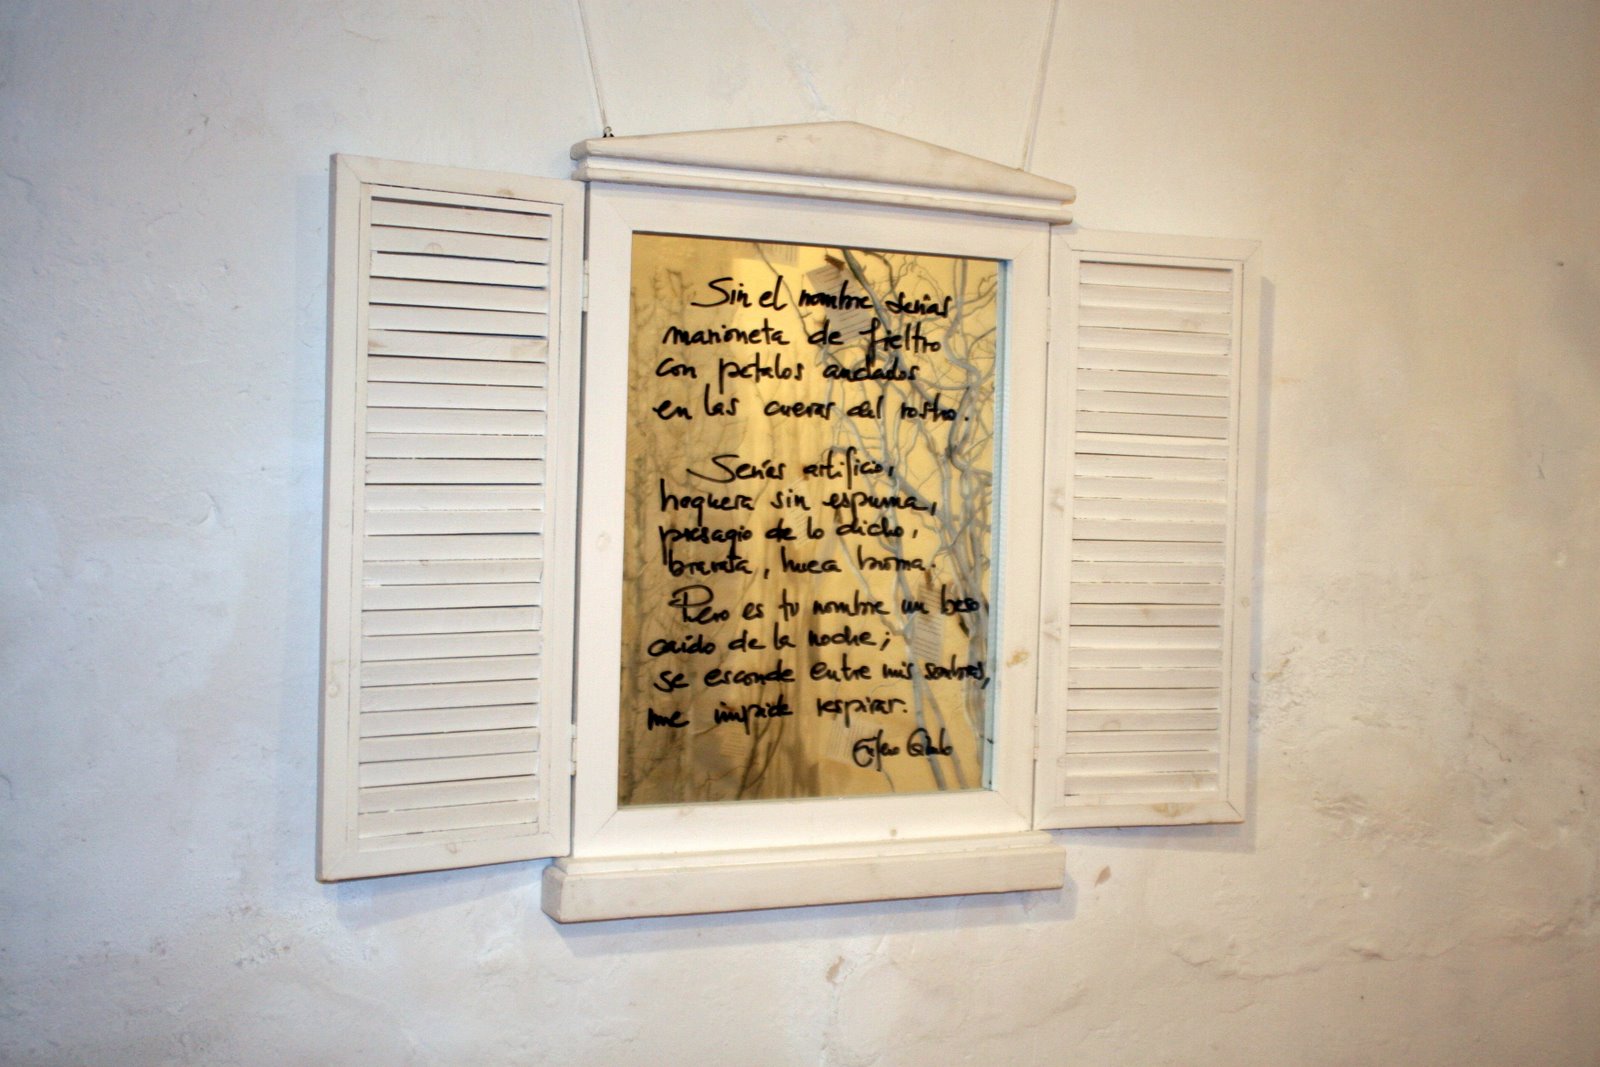 Sin el nombre serías
marioneta de fieltro
con petalos anclados
en las cuevas del rostro.
Serías artificio,
hoguera sin espuma,
presagio de lo dicho,
bravata, hueca broma.
Pero es tu nombre un beso
caído de la noche;
se esconde entre mis sombras,
me impide respirar.